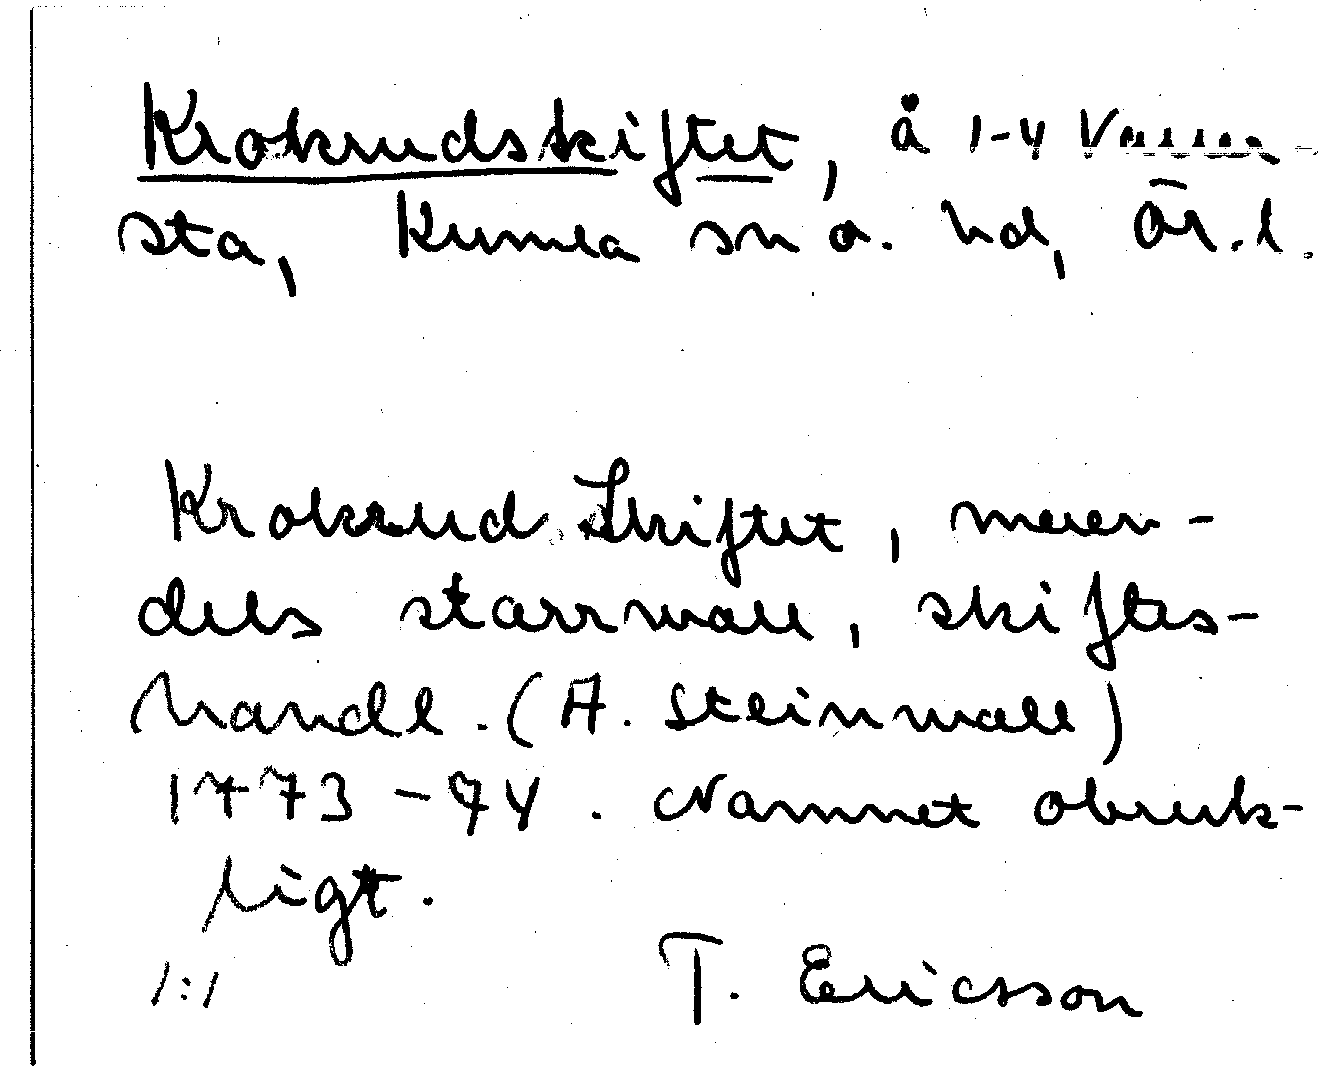 Krokrudskiftet, å 1-4 Vamme-
sta, Kumla sn o. hd, Ör.l.
Krokrud Skiftet, meren-
dels starrwall, skiftes-
handl. (A. Steinwall)
1773-94. Namnet obruk-
ligt.
1:1 T. Ericsson